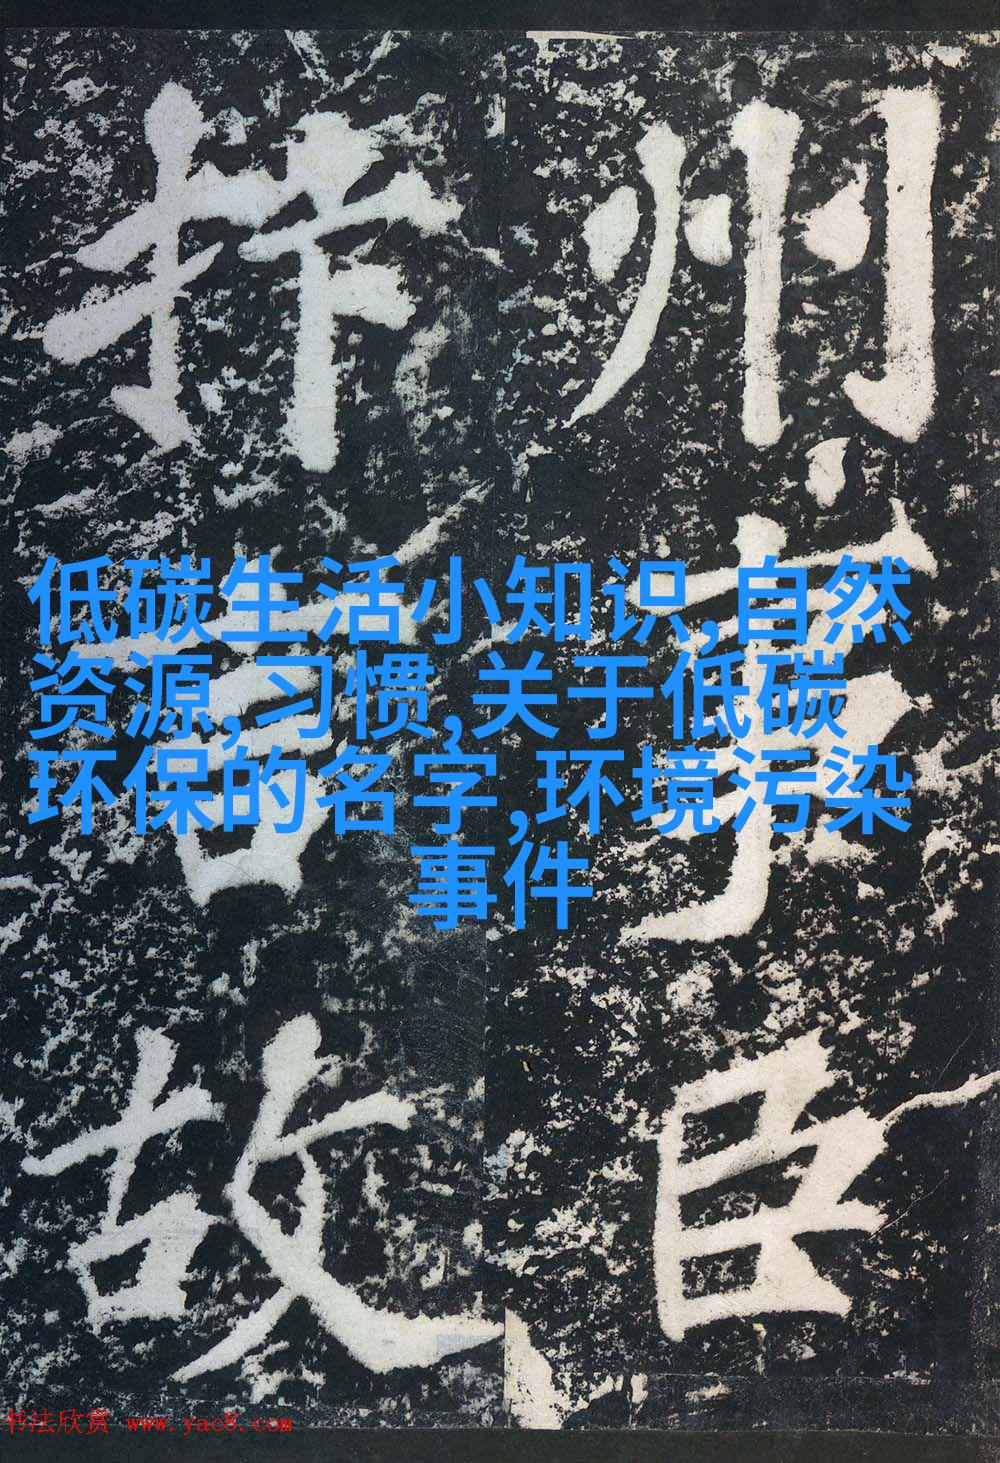 州事臣
抃言故
低碳生活小知识,自然
资源,习惯,关于低碳
环保的名字,环境污染
事件
书法欣赏 www.yac8.com